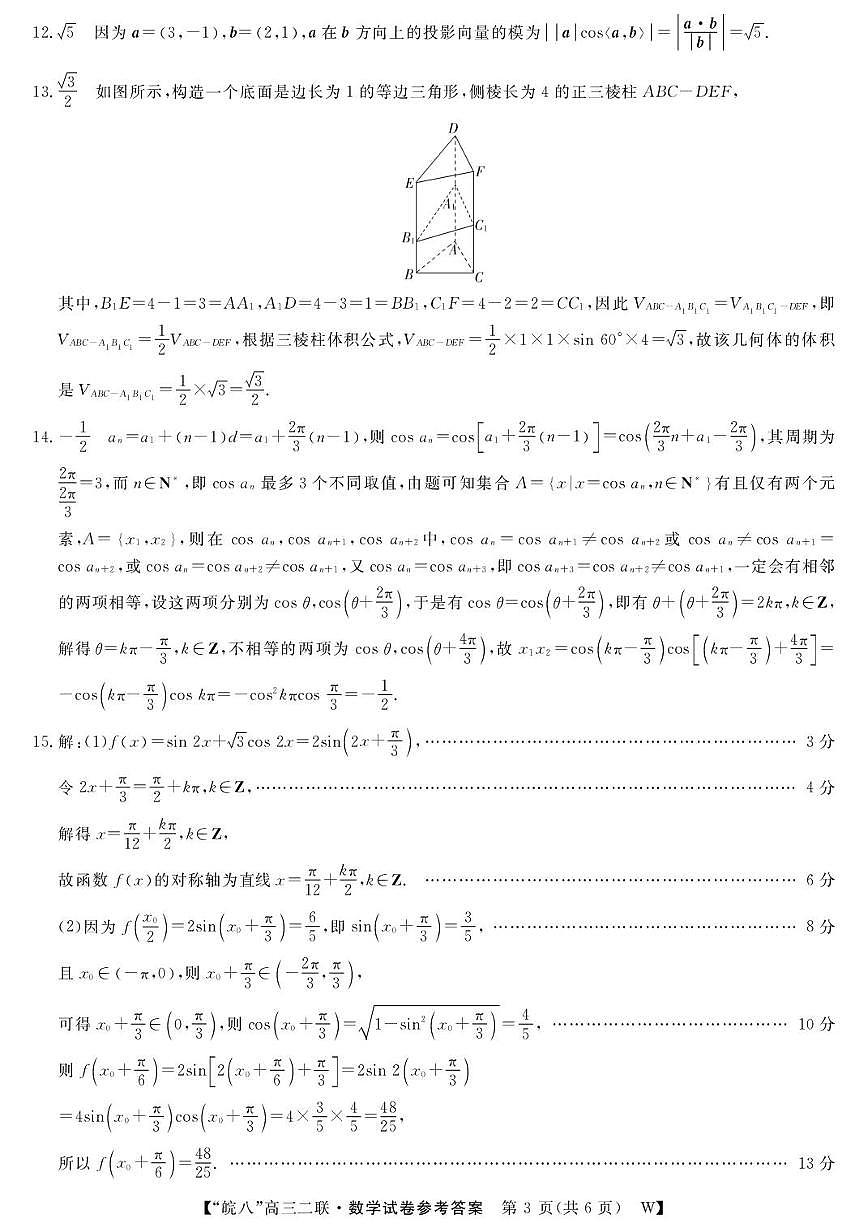 12.√5 因为 a=(3,-1),b=(2,1),a 在 b 方向上的投影向量的模为||a|cos⟨a,b⟩|=|a·b/|b||=√5.
13.√3/2 如图所示,构造一个底面是边长为 1 的等边三角形,侧棱长为 4 的正三棱柱 ABC-DEF,
D
E
F
A₁
B₁
C₁
A
B
C
其中,B₁E=4-1=3=AA₁,A₁D=4-3=1=BB₁,C₁F=4-2=2=CC₁,因此 V_{ABC-A₁B₁C₁}=V_{A₁B₁C₁-DEF},即
V_{ABC-A₁B₁C₁}=1/2 V_{ABC-DEF},根据三棱柱体积公式,V_{ABC-DEF}=1/2×1×1×sin 60°×4=√3,故该几何体的体积
是 V_{ABC-A₁B₁C₁}=1/2×√3=√3/2.
14.-1/2 aₙ=a₁+(n-1)d=a₁+2π/3(n-1),则 cos aₙ=cos[a₁+2π/3(n-1)]=cos(2π/3 n+a₁-2π/3),其周期为
2π/(2π/3)=3,而 n∈N*,即 cos aₙ 最多 3 个不同取值,由题可知集合 A={x|x=cos aₙ,n∈N*}有且仅有两个元
素,A={x₁,x₂},则在 cos aₙ,cos aₙ₊₁,cos aₙ₊₂中,cos aₙ=cos aₙ₊₁≠cos aₙ₊₂或 cos aₙ≠cos aₙ₊₁=
cos aₙ₊₂,或 cos aₙ=cos aₙ₊₂≠cos aₙ₊₁,又 cos aₙ=cos aₙ₊₃,即 cos aₙ₊₃=cos aₙ₊₂≠cos aₙ₊₁,一定会有相邻
的两项相等,设这两项分别为 cos θ,cos(θ+2π/3),于是有 cos θ=cos(θ+2π/3),即有 θ+(θ+2π/3)=2kπ,k∈Z,
解得 θ=kπ-π/3,k∈Z,不相等的两项为 cos θ,cos(θ+4π/3),故 x₁x₂=cos(kπ-π/3)cos[(kπ-π/3)+4π/3]=
-cos(kπ-π/3)cos kπ=-cos²kπcos π/3=-1/2.
15.解:(1)f(x)=sin 2x+√3cos 2x=2sin(2x+π/3),…………………………………………… 3 分
令 2x+π/3=π/2+kπ,k∈Z,…………………………………………… 4 分
解得 x=π/12+kπ/2,k∈Z,
故函数 f(x)的对称轴为直线 x=π/12+kπ/2,k∈Z. …………………………………………… 6 分
(2)因为 f(x₀/2)=2sin(x₀+π/3)=6/5,即 sin(x₀+π/3)=3/5,…………………………………… 8 分
且 x₀∈(-π,0),则 x₀+π/3∈(-2π/3,π/3),
可得 x₀+π/3∈(0,π/3),则 cos(x₀+π/3)=√(1-sin²(x₀+π/3))=4/5,…………………………… 10 分
则 f(x₀+π/6)=2sin[2(x₀+π/6)+π/3]=2sin 2(x₀+π/3)
=4sin(x₀+π/3)cos(x₀+π/3)=4×3/5×4/5=48/25,
所以 f(x₀+π/6)=48/25. …………………………………………… 13 分
【“皖八”高三二联·数学试卷参考答案 第 3 页(共 6 页) W】